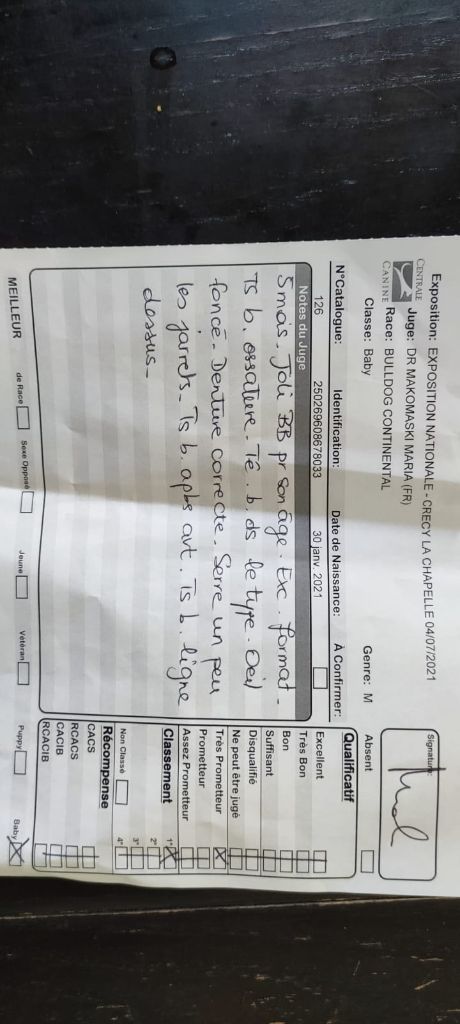 Exposition: EXPOSITION NATIONALE - CRECY LA CHAPELLE 04/07/2021
CENTRALE CANINE
Juge: DR MAKOMASKI MARIA (FR)
Race: BULLDOG CONTINENTAL
Classe: Baby Genre: M
Signature:
Absent
N°Catalogue: Identification: Date de Naissance: À Confirmer:
126 250269608678033 30 janv. 2021
Notes du Juge
5 mois. Joli BB pr son âge. Exc. format.
Ts b. ossature. Tê. b. ds le type. Oeil
foncé. Denture correcte. Serre un peu
les jarrets. Ts b. aplbs avt. Ts b. ligne
dessus.
Qualificatif
Excellent
Très Bon
Bon
Suffisant
Disqualifié
Ne peut être jugé
Très Prometteur X
Prometteur
Assez Prometteur
Classement
1° X
2°
3°
4°
Non Classé
Récompense
CACS
RCACS
CACIB
RCACIB
MEILLEUR
de Race Sexe Opposé Jeune Vétéran Puppy Baby X